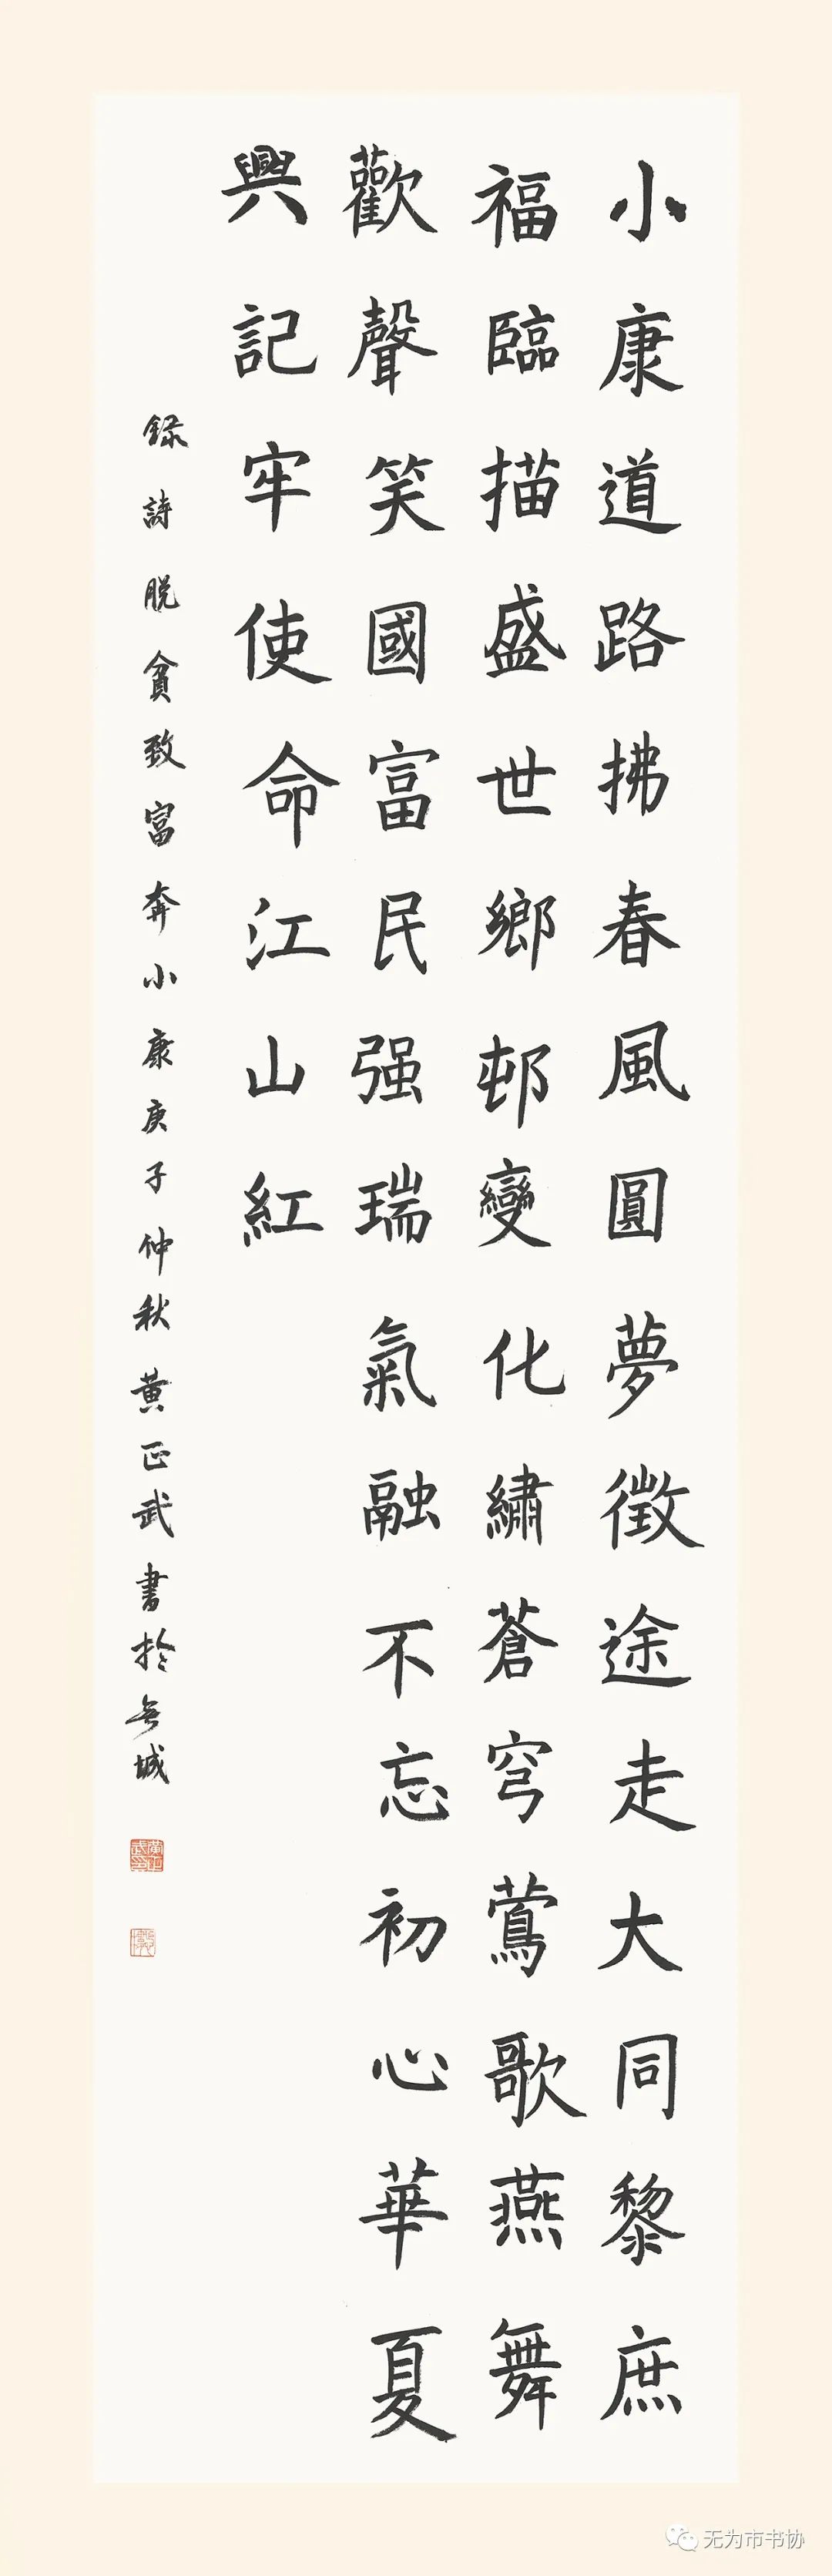 小康道路拂春風圓夢徵途走大同黎庶
福臨描盛世鄉邨變化繡蒼穹鶯歌燕舞
歡聲笑國富民强瑞氣融不忘初心華夏
興記牢使命江山紅
録詩脱貧致富奔小康庚子仲秋黄正武書於無城
无为市书协